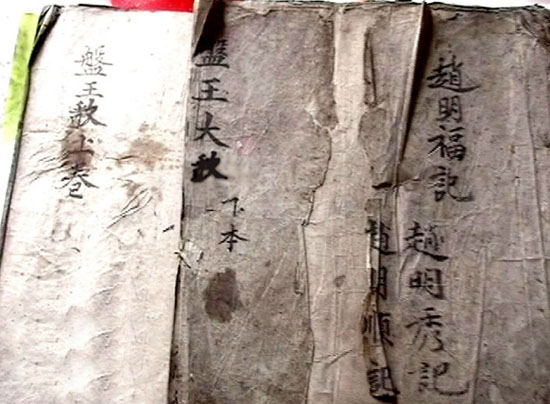 趙明福記
趙明秀記
趙明順記
盤王大歌
下本
盤王歌上卷